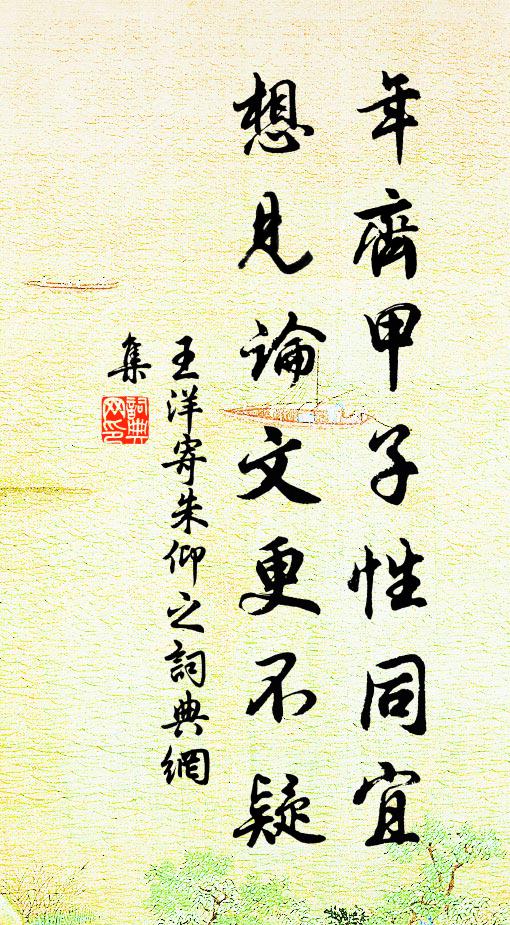 年齊甲子性同宜
想見論文更不疑
王洋寄朱仰之詞典網
集
詞典網印